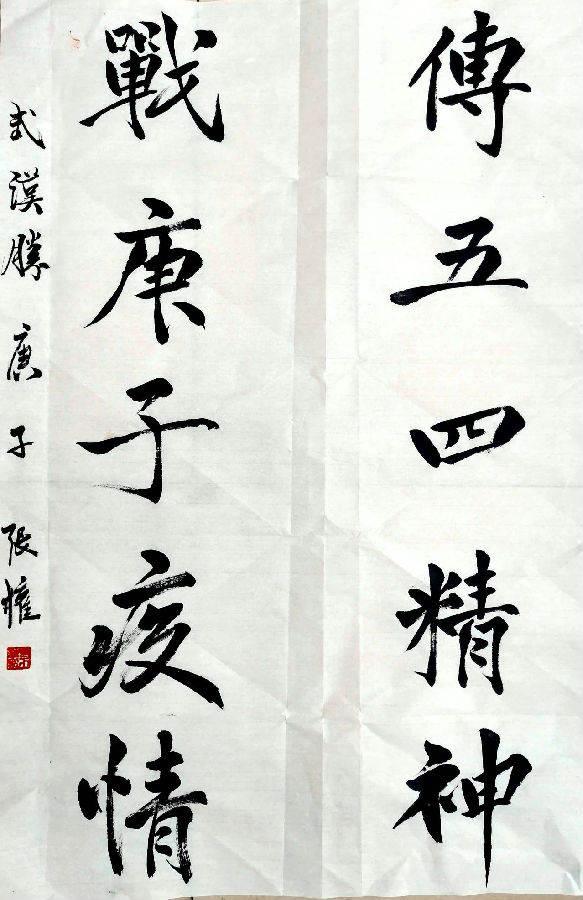 傳五四精神
戰庚子疫情
武漢勝 庚子 張